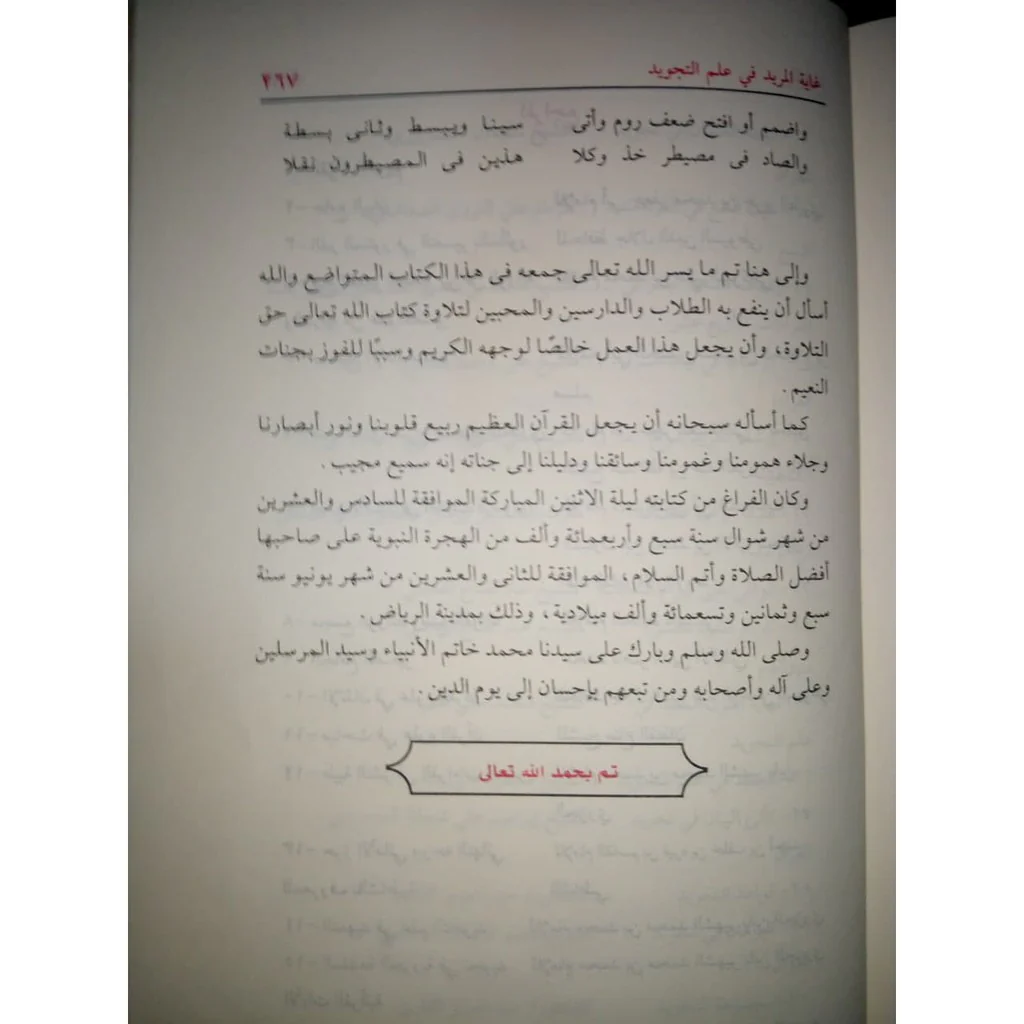 غاية المريد في علم التجويد ٢٦٧
واضمم أو افتح ضعف روم وأتى سينا ويبسط وثانى بسطة
والصاد فى مصيطر خذ وكلا هذين فى المصيطرون نقلا
وإلى هنا تم ما يسر الله تعالى جمعه فى هذا الكتاب المتواضع والله
أسأل أن ينفع به الطلاب والدارسين والمحبين لتلاوة كتاب الله تعالى حق
التلاوة، وأن يجعل هذا العمل خالصًا لوجهه الكريم وسببًا للفوز بجنات
النعيم.
كما أسأله سبحانه أن يجعل القرآن العظيم ربيع قلوبنا ونور أبصارنا
وجلاء همومنا وغمومنا وسائقنا ودليلنا إلى جناته إنه سميع مجيب.
وكان الفراغ من كتابته ليلة الاثنين المباركة الموافقة للسادس والعشرين
من شهر شوال سنة سبع وأربعمائة وألف من الهجرة النبوية على صاحبها
أفضل الصلاة وأتم السلام، الموافقة للثانى والعشرين من شهر يونيو سنة
سبع وثمانين وتسعمائة وألف ميلادية، وذلك بمدينة الرياض.
وصلى الله وسلم وبارك على سيدنا محمد خاتم الأنبياء وسيد المرسلين
وعلى آله وأصحابه ومن تبعهم بإحسان إلى يوم الدين.
تم بحمد الله تعالى